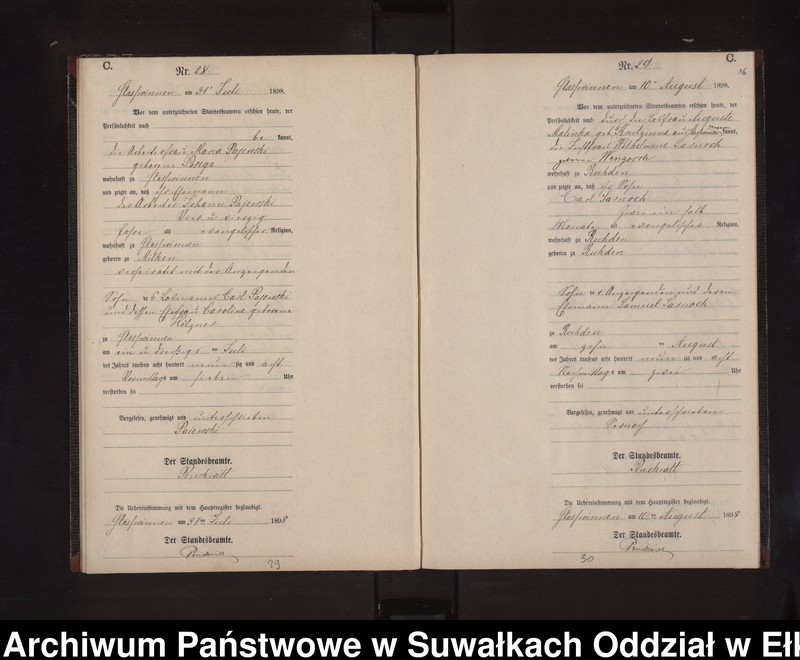 C.
Nr. 28
am 31t Juli 1898.
Vor dem unterzeichneten Standesbeamten erschien heute, der
Persönlichkeit nach
be kannt,
Maria Pajewski
geborene
wohnhaft zu
und zeigte an, daß
des Arbeiter Johann Pajewski
Vier u vierzig
Jahre alt evangelischer Religion,
wohnhaft zu
geboren zu Milken
verheirathet mit der Anzeigenden
Sohn des Losmanns Carl Pajewski
und dessen Ehefrau Caroline geborene
zu
am ein u dreißigs ten Juli
des Jahres tausend acht hundert neun zig und acht
Vormittags um sieben Uhr
verstorben sei
Vorgelesen, genehmigt und unterschrieben
Pajewski
Der Standesbeamte.
Die Uebereinstimmung mit dem Hauptregister beglaubigt.
am 31ten Juli 1898
Der Standesbeamte.
29
C.
Nr. 29
16
am 10t August 1898.
Vor dem unterzeichneten Standesbeamten erschien heute, der
Persönlichkeit nach durch die Losfrau Auguste
Malinka geb. kannt,
Wilhelmine Sarnoch
geborene
wohnhaft zu Ruhden
und zeigte an, daß ihr Sohn
Carl Sarnoch
zwei ein halb
Monate alt evangelischer Religion,
wohnhaft zu Ruhden
geboren zu Ruhden
Sohn der Anzeigenden und deren
Ehemann Samuel Sarnoch
zu Ruhden
am zehn ten August
des Jahres tausend acht hundert neun zig und acht
Nachmittags um zwei Uhr
verstorben sei
Vorgelesen, genehmigt und unterschrieben
Der Standesbeamte.
Die Uebereinstimmung mit dem Hauptregister beglaubigt.
am 10ten August 1898
Der Standesbeamte.
30
Archiwum Państwowe w Suwałkach Oddział w Ełk